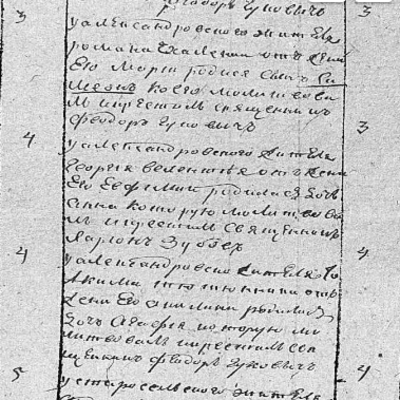 Феодоръ Зуковичъ
3 уалександровского жителя 3
романа от жени
Его марѳи родися сынъ Си
меонъ коего молитвова
л и крестилъ священникъ
Феодоръ Зуковичъ 3
4 уалександровского жителя
Георгия от жени
Его Евфимии родилася дочь
Анна которую молитвова
лъ и крестилъ священникъ
Ларионъ Зубъех
4 уалександровско жителя Iо 4
акима от
жени Его родилася
дочь Агафия которую мо
литвовалъ и крестилъ свя
щенникъ Феодоръ Зуковичъ
5 устаросельского жителя 4